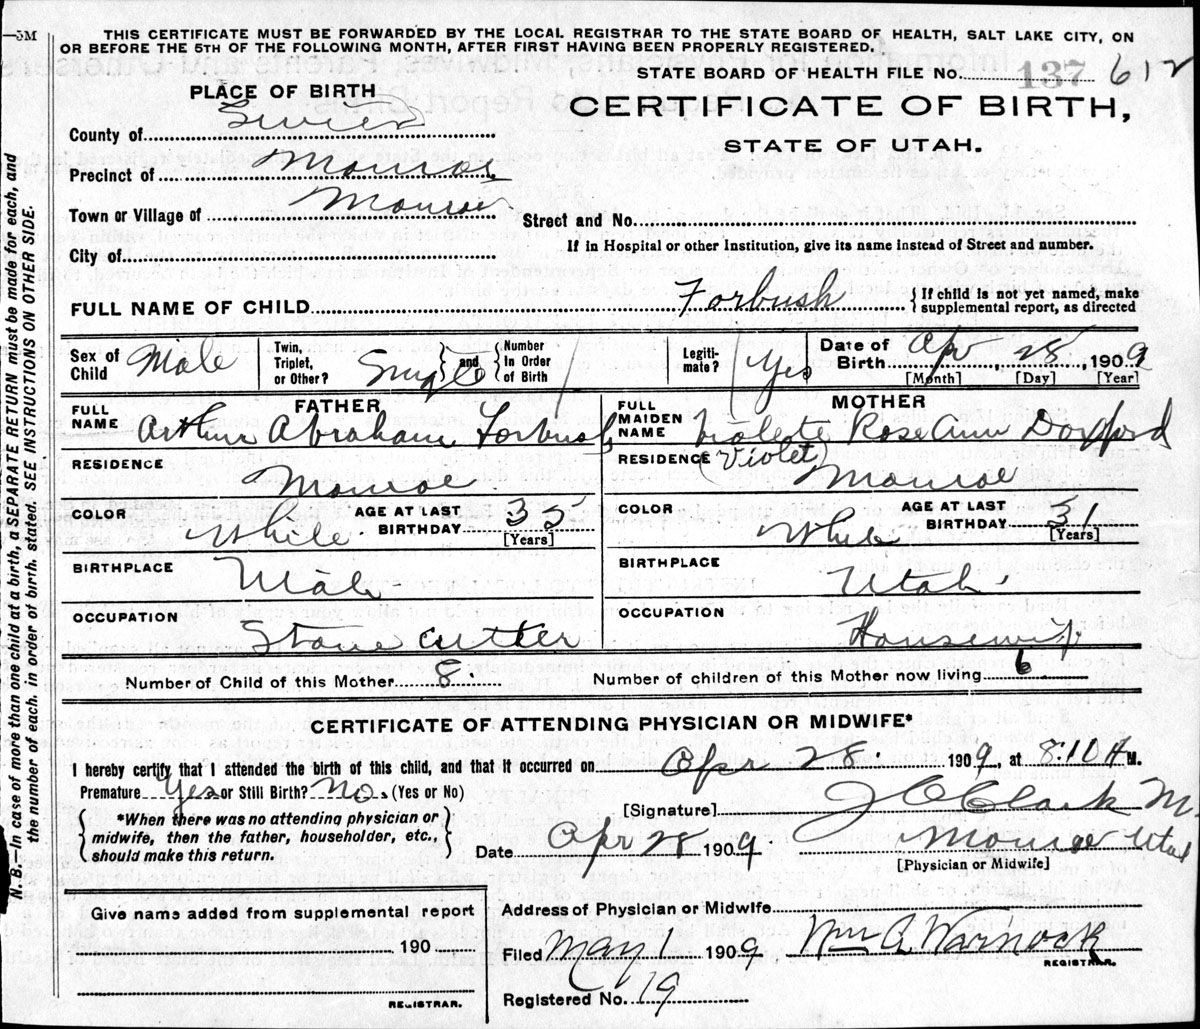 —5M
THIS CERTIFICATE MUST BE FORWARDED BY THE LOCAL REGISTRAR TO THE STATE BOARD OF HEALTH, SALT LAKE CITY, ON
OR BEFORE THE 5TH OF THE FOLLOWING MONTH, AFTER FIRST HAVING BEEN PROPERLY REGISTERED.
STATE BOARD OF HEALTH FILE No. 137 612
PLACE OF BIRTH
CERTIFICATE OF BIRTH,
STATE OF UTAH.
County of Sevier
Precinct of Monroe
Town or Village of Monroe
Street and No.
City of
If in Hospital or other Institution, give its name instead of Street and number.
FULL NAME OF CHILD Forbush {If child is not yet named, make
supplemental report, as directed
Sex of Child Male
Twin, Triplet, or Other? Single } and { Number In Order of Birth
Legiti- mate? Yes
Date of Birth Apr 28, 1909
[Month] [Day] [Year]
FATHER
FULL NAME Arthur Abraham Forbush
MOTHER
FULL MAIDEN NAME Violete Rose Ann Doxford
(Violet)
RESIDENCE Monroe
RESIDENCE Monroe
COLOR White AGE AT LAST BIRTHDAY 35 [Years]
COLOR White AGE AT LAST BIRTHDAY 31 [Years]
BIRTHPLACE
BIRTHPLACE Utah
OCCUPATION Stone cutter
OCCUPATION Housewife
Number of Child of this Mother 8.
Number of children of this Mother now living 6
CERTIFICATE OF ATTENDING PHYSICIAN OR MIDWIFE*
I hereby certify that I attended the birth of this child, and that it occurred on Apr 28. 1909, at 8:10 A M.
Premature Yes or Still Birth? No. (Yes or No)
{ *When there was no attending physician or
midwife, then the father, householder, etc.,
should make this return. }
[Signature] J C Clark M.
Date Apr 28 1909. Monroe Utah
[Physician or Midwife]
Give name added from supplemental report
190
REGISTRAR.
Address of Physician or Midwife
Filed May 1 1909 Wm A Warnock
REGISTRAR.
Registered No. 19
N. B.—In case of more than one child at a birth, a SEPARATE RETURN must be made for each, and
the number of each, in order of birth, stated. SEE INSTRUCTIONS ON OTHER SIDE.